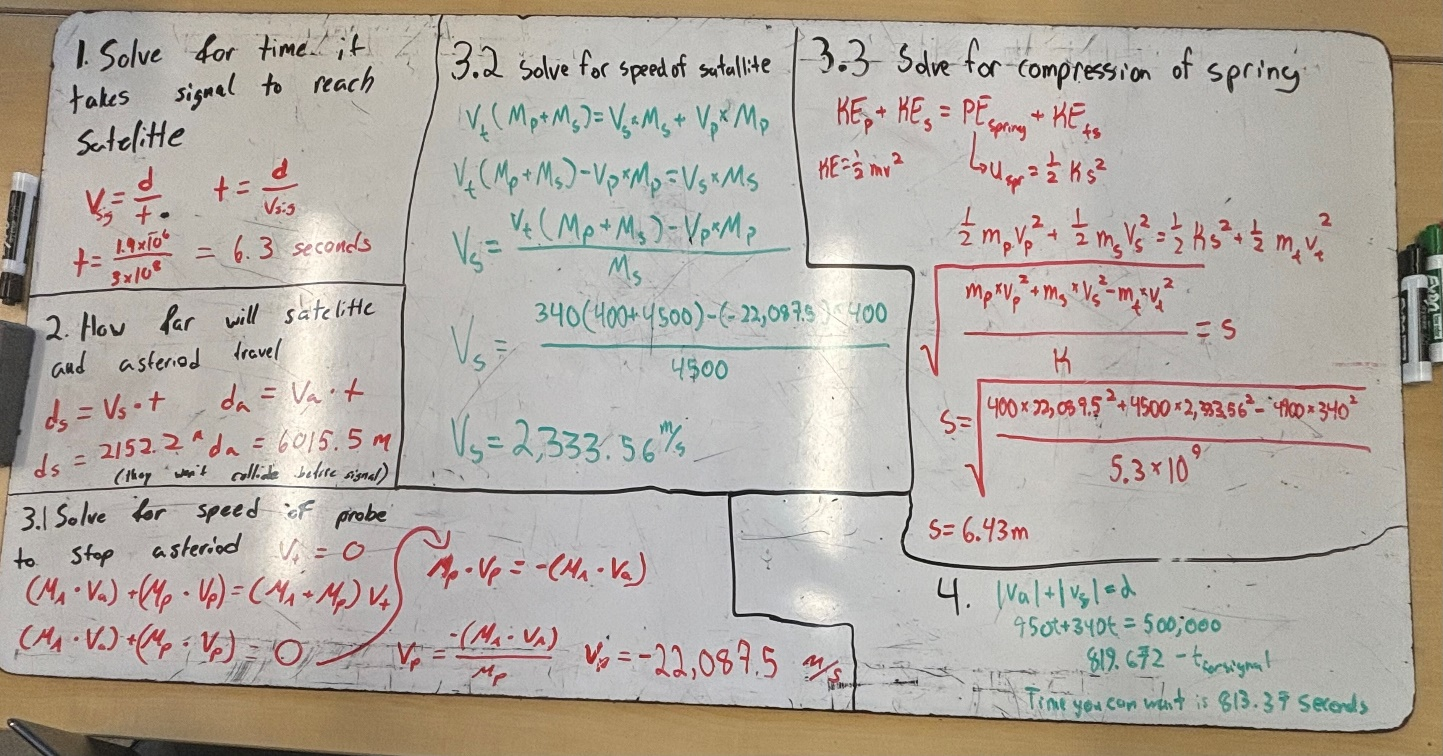 1. Solve for time it
takes signal to reach
Satelitte
V_sig = d/t t = d/V_sig
t = 1.9×10^6 / 3×10^8 = 6.3 seconds
2. How far will satelitte
and asteriod travel
d_s = V_s · t d_a = V_a · t
d_s = 2152.2 m d_a = 6015.5 m
(they won't collide before signal)
3.1 Solve for speed of probe
to stop asteriod V_t = 0
(M_A · V_a) + (M_p · V_p) = (M_A + M_p) V_t
(M_A · V_a) + (M_p · V_p) = 0
M_p · V_p = -(M_A · V_a)
V_p = -(M_A · V_A) / M_p V_p = -22,087.5 m/s
3.2 Solve for speed of satallite
V_t (M_p + M_s) = V_s × M_s + V_p × M_p
V_t (M_p + M_s) - V_p × M_p = V_s × M_s
V_s = V_t (M_p + M_s) - V_p × M_p / M_s
V_s = 340(400+4500) - (-22,087.5) × 400 / 4500
V_s = 2,333.56 m/s
3.3 Solve for compression of spring
KE_p + KE_s = PE_spring + KE_ts
KE = 1/2 mv^2 ↳ U_spr = 1/2 Ks^2
1/2 m_p V_p^2 + 1/2 m_s V_s^2 = 1/2 Ks^2 + 1/2 m_t V_t^2
√(m_p × V_p^2 + m_s × V_s^2 - m_t × V_t^2 / K) = s
s = √(400 × 22,089.5^2 + 4500 × 2,333.56^2 - 4900 × 340^2 / 5.3 × 10^9)
s = 6.43m
4. |Va| + |Vs| = d
950t + 340t = 500,000
819.672 - t for signal
Time you can wait is 813.37 seconds